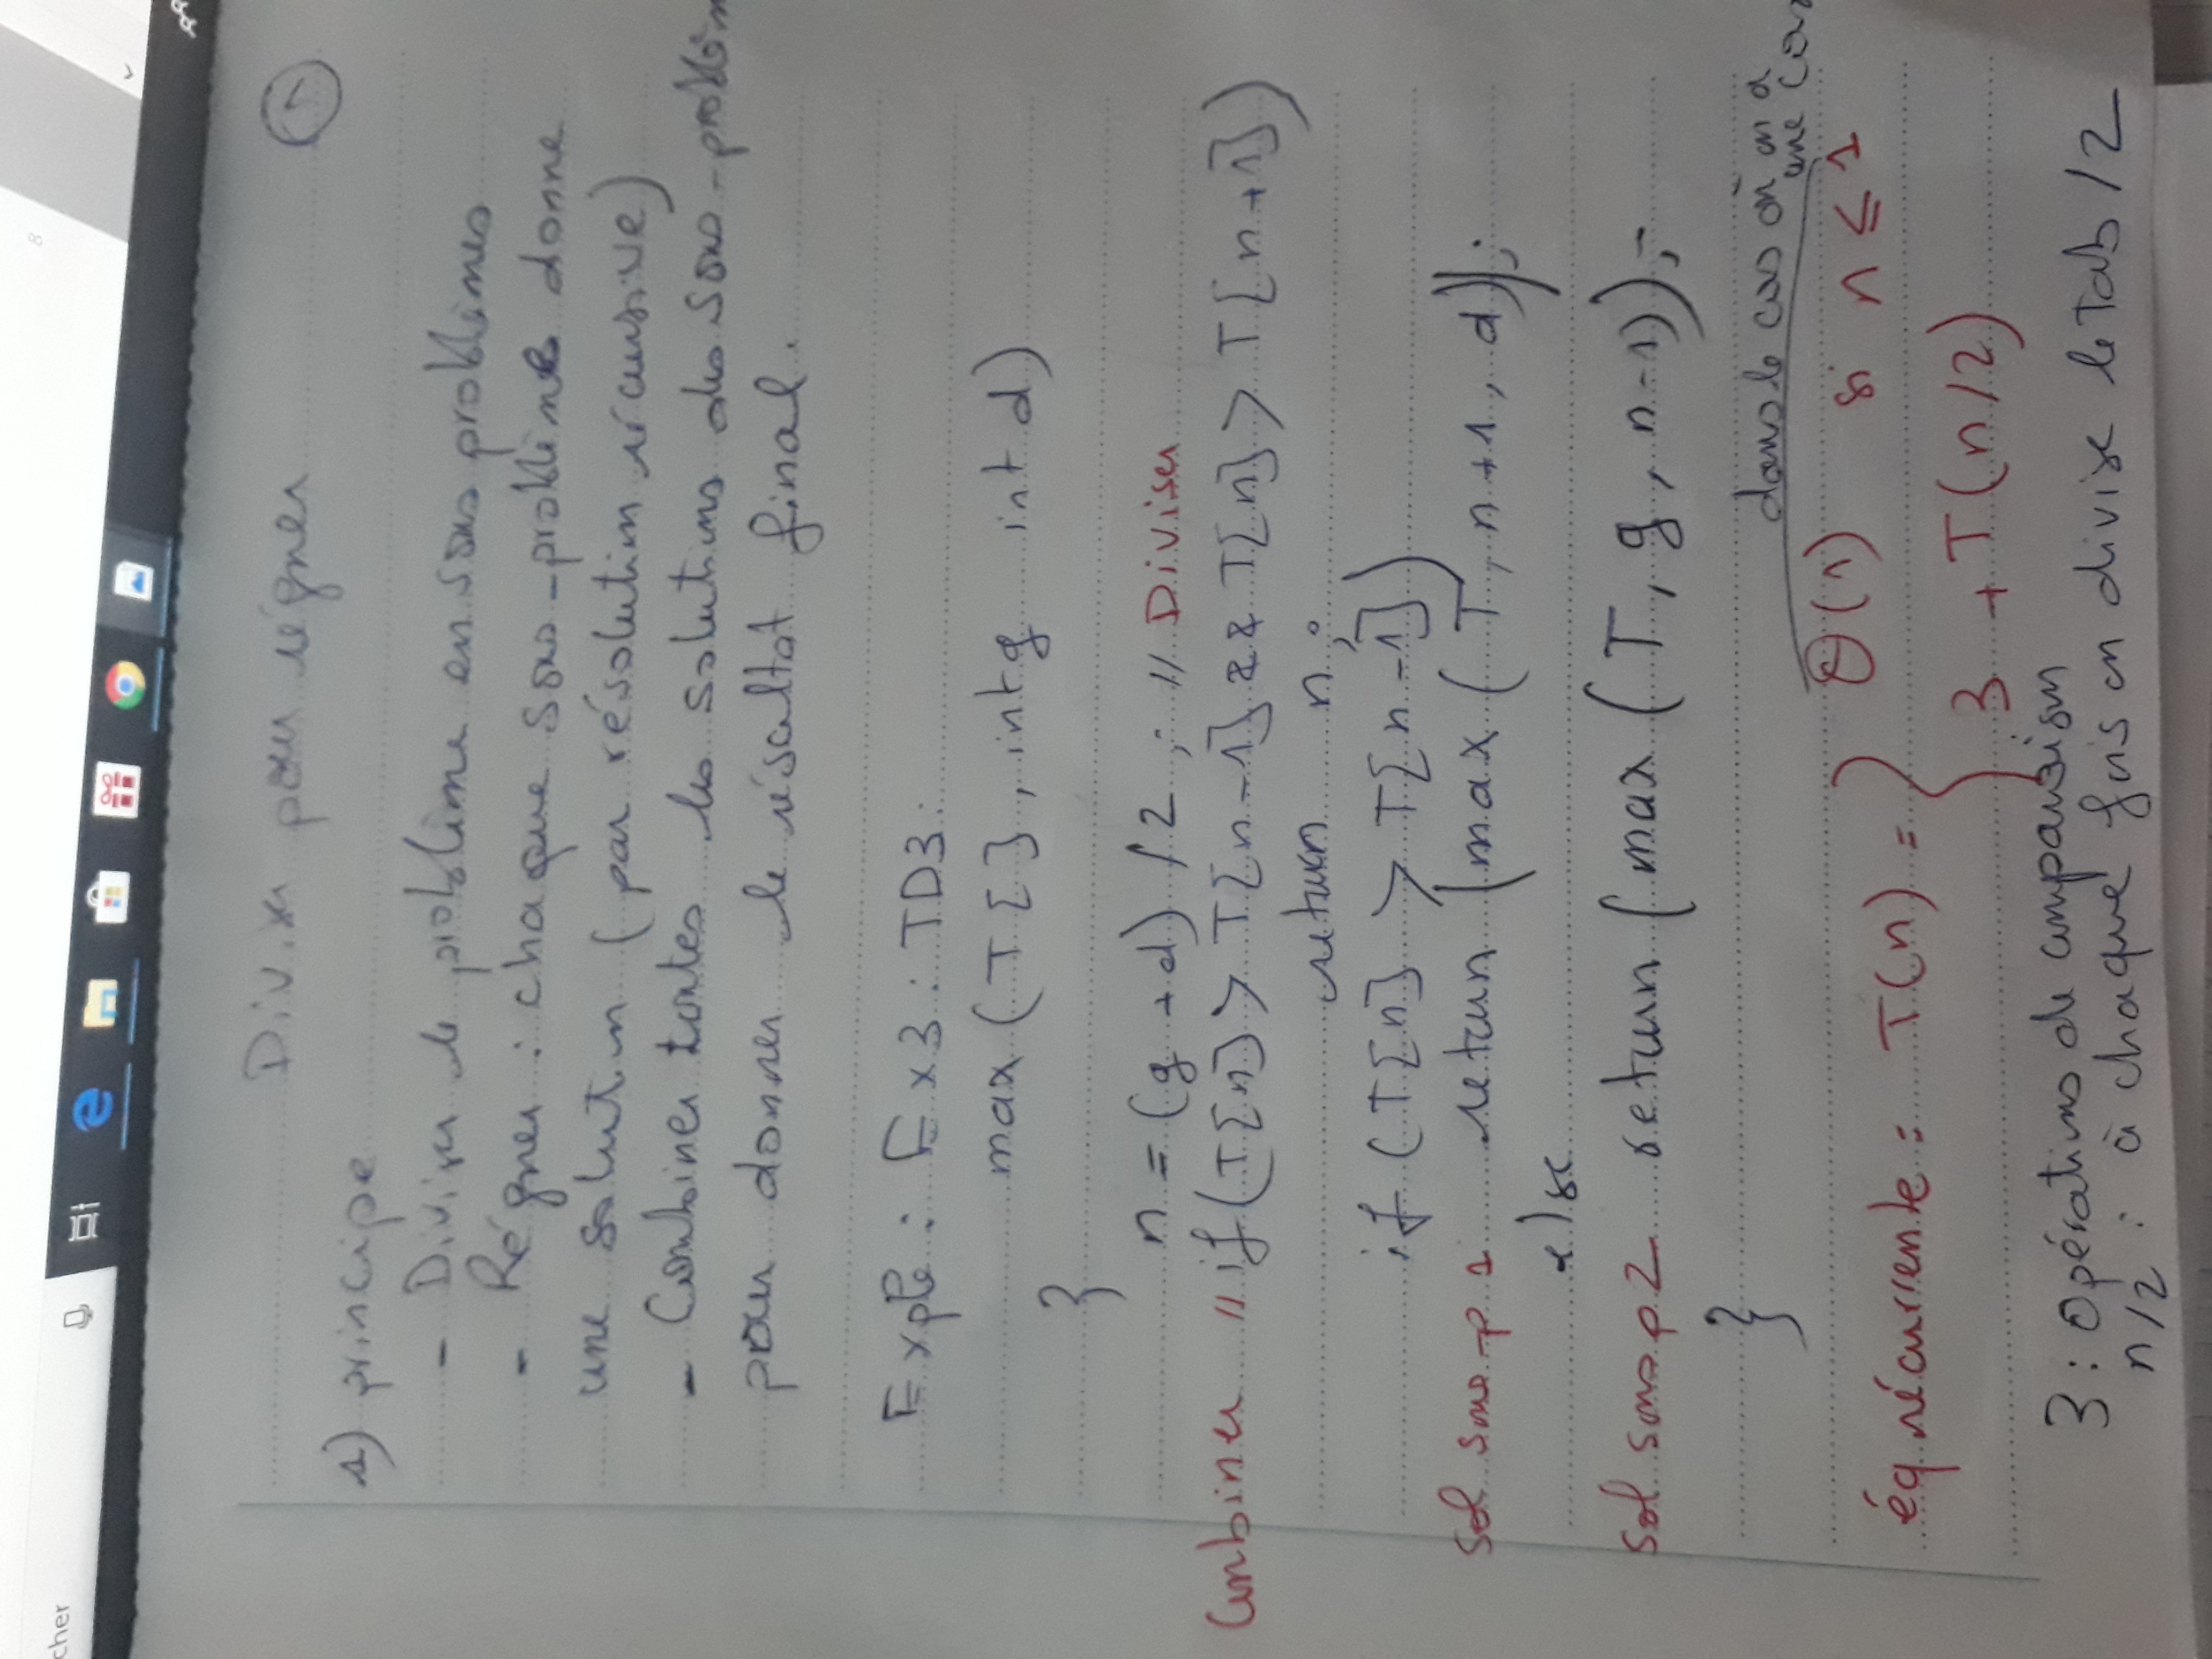 cher
8
Diviser pour régner
1
1) principe
- Diviser le problème en sous problèmes
- Régner : chaque sous-problème donne
une solution (par résolution récursive)
- Combiner toutes les solutions des sous-problèm
pour donner le résultat final.
Exple : Ex3 : TD3:
max (T[], int g int d)
}
n = (g + d) / 2 ; // Diviser
Combiner // if (T[n] > T[n-1] && T[n] > T[n+1])
return n ;
if (T[n] > T[n-1])
sol sous-p 1 return (max (T, n+1, d));
else
sol sous p 2 return (max (T, g, n-1));
}
dans le cas où on a
une cas
éq récurrente = T(n) = { Θ(1) si n ≤ 1
3 + T(n/2)
3 : Opérations de comparaison
n/2 : à chaque fois on divise le Tab /2